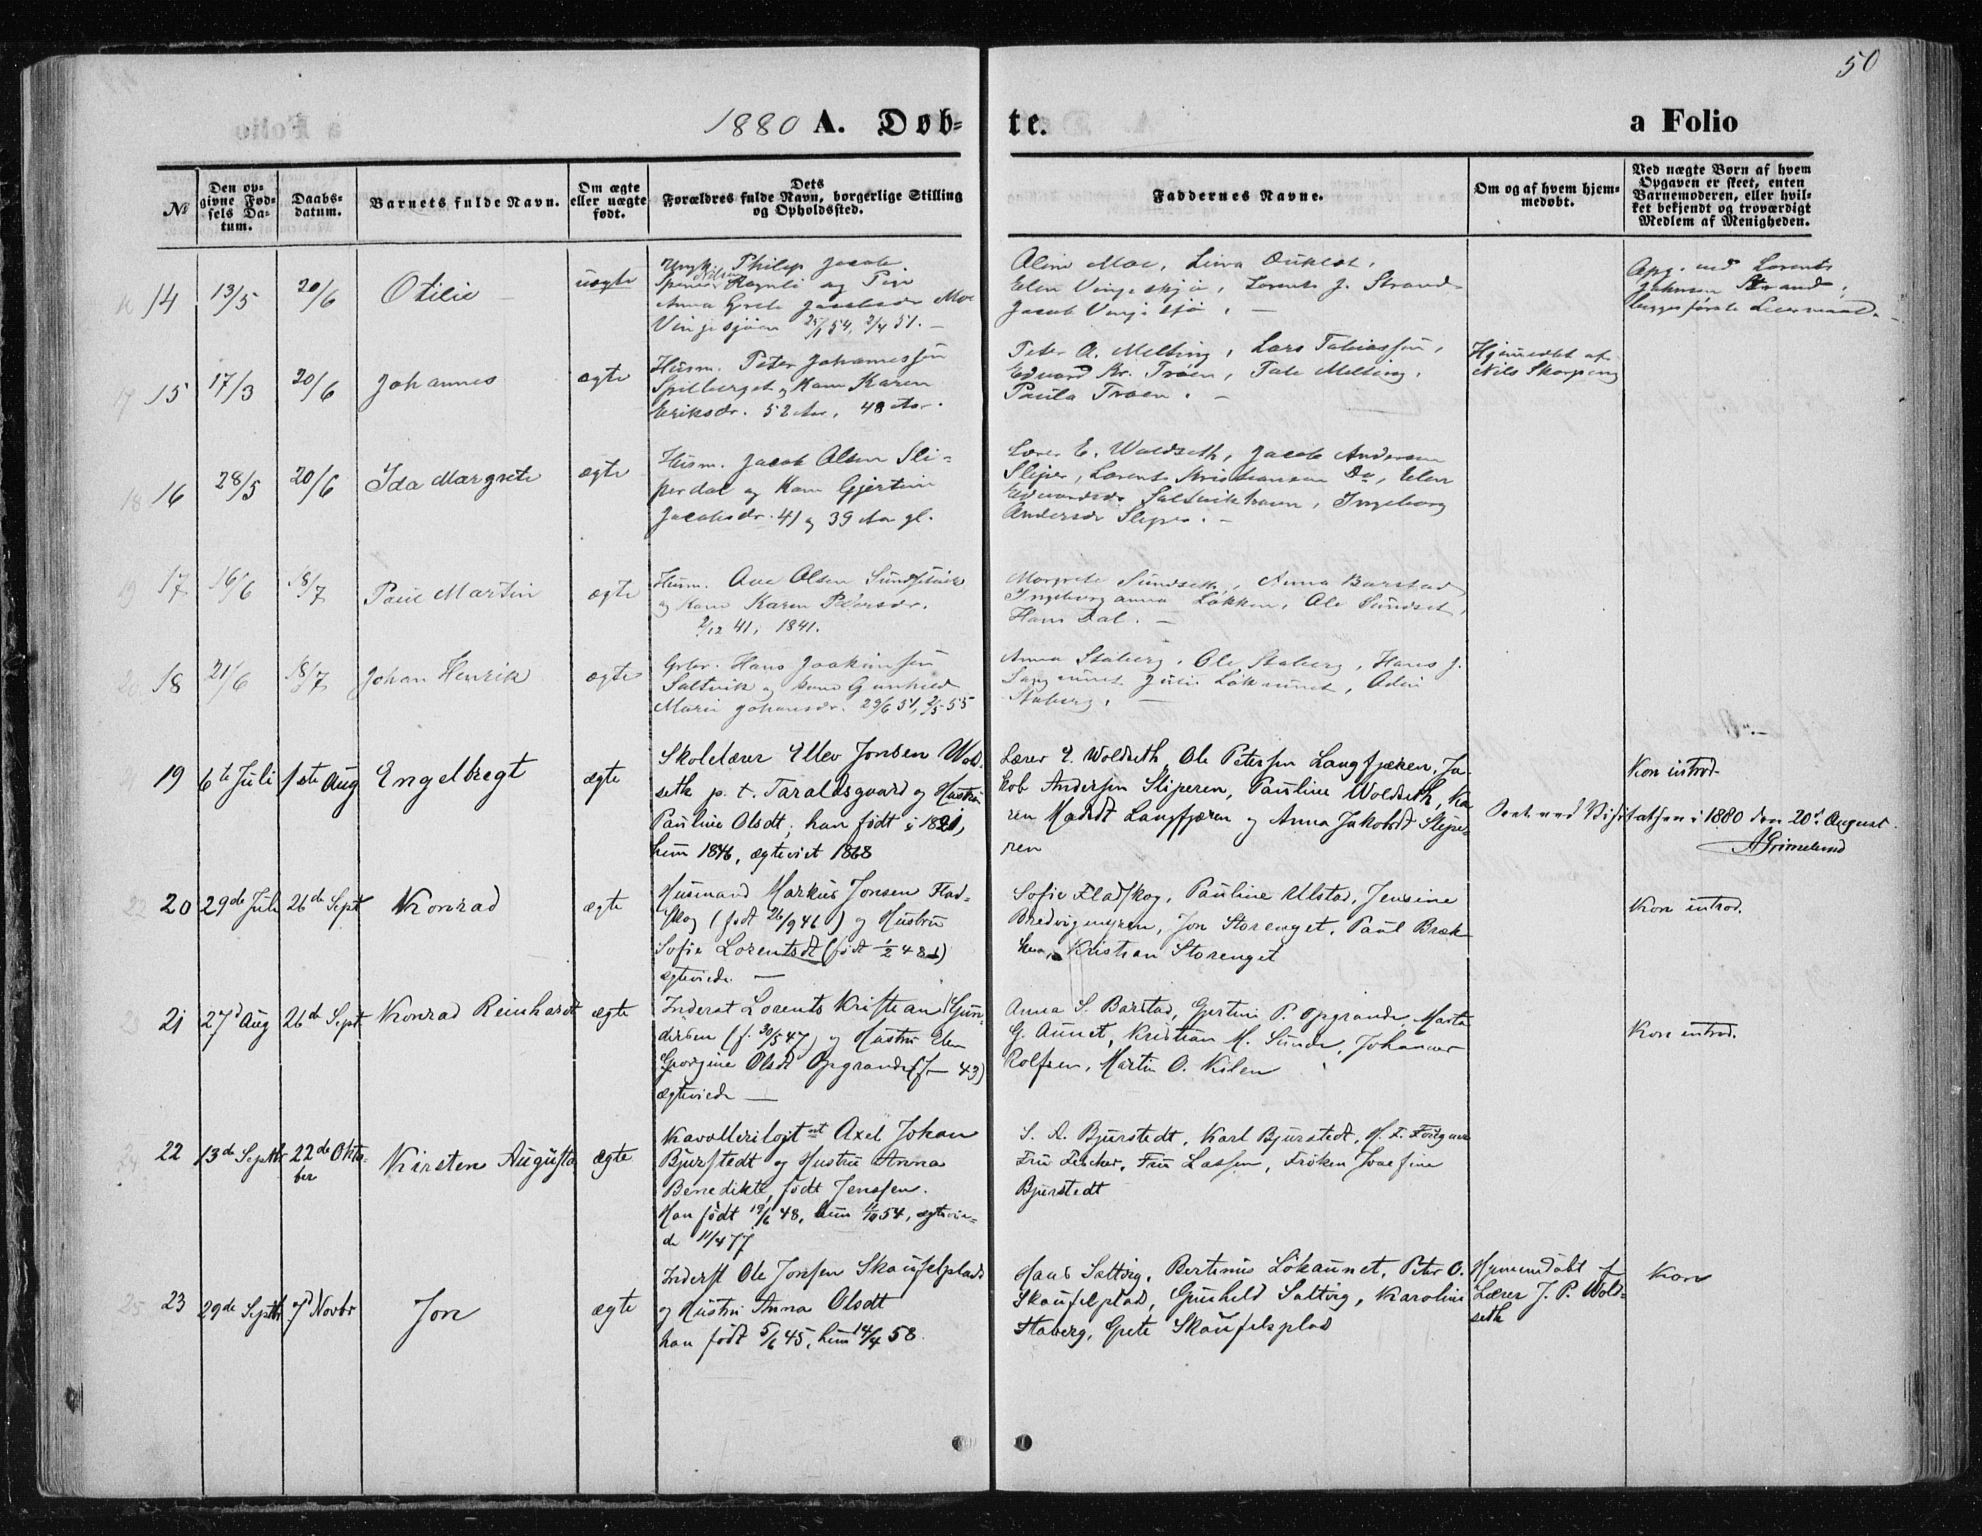 50
1880 A. Døb- te. a Folio
№
Den op-
givne Fød-
sels Da-
tum.
Daabs-
datum.
Barnets fulde Navn.
Om ægte
eller uægte
født.
Dets
Forældres fulde Navn, borgerlige Stilling
og Opholdssted.
Faddernes Navne.
Om og af hvem hjem-
medøbt.
Ved uægte Børn af hvem
Opgaven er skeet, enten
Barnemoderen, eller hvil-
ket bekjendt og troværdigt
Medlem af Menigheden.
14 13/5 20/6 Otilie uægte
Ungk. Philip Jacob
og Pige
Anna Grete Moe
Vingesjøen 54, 2/4 51. —
Aline Moe, Lina
Elen Vingesjø, Lorents J. Strand
Jacob Vingesjø. —
Opg. ved Lorents
Johnsen Strand,
begges første Leiermaal. —
15 17/3 20/6 Johannes ægte
Husm. Peter Johannessen
Spilberget og Kone Karen
Eriksdr. 52 Aar, 48 Aar.
Peter A. Melting, Lars Tobiassen,
Edvard Br. Trøen, Melting,
Paula Trøen. —
Hjemmedøbt af
Nils
16 28/5 20/6 Ida Margrete ægte
Husm. Jacob Olsen Sli-
perdal og Kone Gjertine
Jacobsdr. 41 og 39 Aar gl.
Lærer E. Woldseth, Jacob Andersen
Sliper, Lorents Kristiansen Do, Elen
Edvardsdr Saltvikhaven, Ingeborg
Andersdr Sliper. —
17 16/6 18/7 Paul Martin ægte
Husm. Olsen
og Kone Karen Pedersdr.
2/12 41, 1841.
Margrete Sundseth, Anna Barstad
Ingeborganna Løkken, Ole Sundset,
Hans Dal. —
18 21/6 18/7 Johan Henrik ægte
Grbr. Hans Joakimsen
Saltvik og Kone Gunhild
Marie Johansdr. 29/6 51, 2/5 55
Anna Staberg, Ole Staberg, Hans J.
Staberg. —
19 6te Juli 1ste Aug Engelbregt ægte
Skolelærer Ellev Jonsen Wol-
seth p. t. Taraldsgaard og Hustru
Pauline Olsdt; han født i 1821,
hun 1846, ægteviet 1868
Lærer E. Woldseth, Ole Petersen Langfjæren, Ja-
kob Andersen Sliperen, Pauline Woldseth, Ka-
ren Madsdt Langfjæren og Anna Jakobsdt Slipe-
ren
Kon introd.
Seet ved Visitatsen i 1880 den 20d August.
AGrimelund
20 29de Juli 26de Sept Konrad ægte
Husmand Markus Jonsen Flad-
skog (født 26/9 46) og Hustru
Sofie Lorentsdt (født 1/2 48)
ægteviede —
Sofie Fladskog, Pauline Ulstad, Jensine
Bredvigmyren, Jon Storenget, Paul Bræk-
ken, Kristian Storenget
Kon introd.
21 27d Aug 26de Sept Konrad Reinhardt ægte
Inderst Lorents Kristian Gun-
dersen (f. 30/5 47) og Hustru Elen
Georgine Olsdt Opgrande (f— 43)
ægteviede —
Anna S. Barstad, Gjertine P. Opgrande, Marta
G. Aunet, Kristian M. Sunde, Johannes
Rolfsen, Martin O. Kilen
Kon introd.
22 13de Septbr 22de Okto-
ber Kirsten Augusta ægte
Kavalleriløjtnt Axel Johan
Bjurstedt og Hustru Anna
Benedikte, født Jenssen.
Han født 19/6 48, hun 54, ægtevie-
de 11/4 77
S. A. Bjurstedt, Karl Bjurstedt,
Fru Fischer, Fru Lassen, Frøken Josefine
Bjurstedt
23 29de Septbr 7d Novbr Jon ægte
Inderst Ole Jonsen Skaufelplads
og Hustru Anna Olsdt
han født 5/6 45, hun 14/4 58
Hans Saltvig, Bertinus Løkaunet, Peter O.
Skaufelplad, Gunhild Saltvig, Karoline
Staberg, Grete Skaufelsplad
Hjemmedøbt af
Lærer J. P. Wold-
seth
Kon